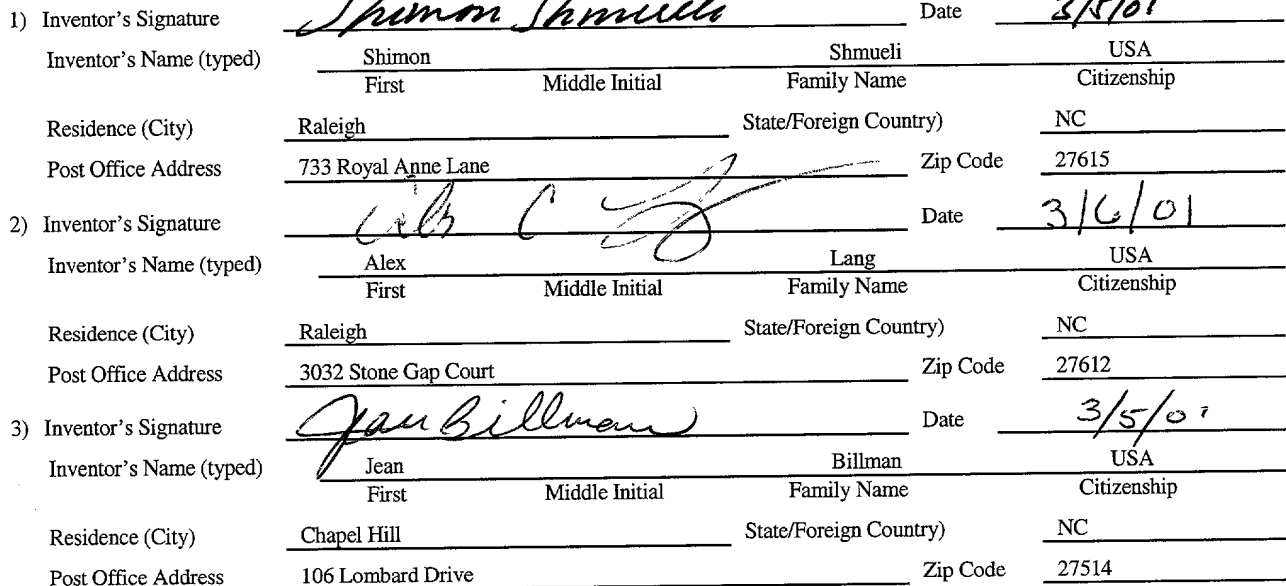 1) Inventor's Signature Shimon Shmueli Date 3/5/01
Inventor's Name (typed) Shimon Shmueli USA
First Middle Initial Family Name Citizenship
Residence (City) Raleigh State/Foreign Country) NC
Post Office Address 733 Royal Anne Lane Zip Code 27615
2) Inventor's Signature Date 3/6/01
Inventor's Name (typed) Alex Lang USA
First Middle Initial Family Name Citizenship
Residence (City) Raleigh State/Foreign Country) NC
Post Office Address 3032 Stone Gap Court Zip Code 27612
3) Inventor's Signature Jean Billman Date 3/5/01
Inventor's Name (typed) Jean Billman USA
First Middle Initial Family Name Citizenship
Residence (City) Chapel Hill State/Foreign Country) NC
Post Office Address 106 Lombard Drive Zip Code 27514